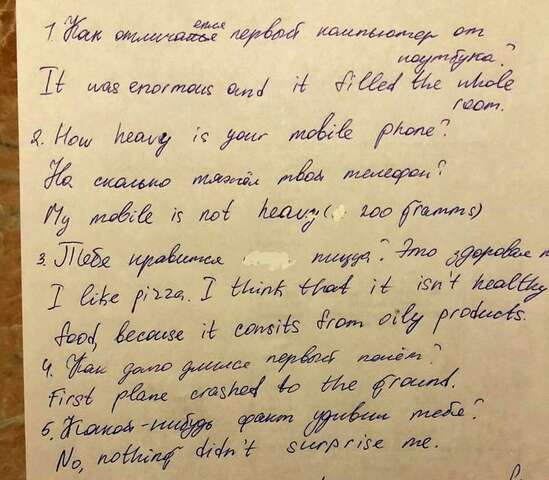 1. Как отличается первый компьютер от
ноутбука?
It was enormous and it filled the whole
room.
2. How heavy is your mobile phone?
На сколько тяжёл твой телефон?
My mobile is not heavy ( 200 gramms)
3. Тебе нравится пицца? Это здоровая
I like pizza. I think that it isn't healthy
food, because it consits from oily products.
4. Как длился первый полёт?
First plane crashed to the ground.
5. Какой-нибудь факт удивил тебя?
No, nothing didn't surprise me.